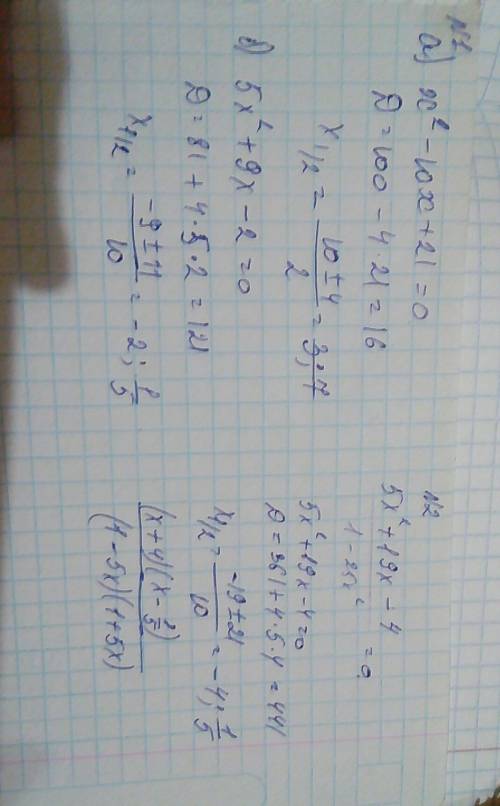 №1
а) x² - 10x + 21 = 0
D = 100 - 4·21 = 16
x₁/₂ = (10 ± 4)/2 = 3; 7
б) 5x² + 9x - 2 = 0
D = 81 + 4·5·2 = 121
x₁/₂ = (-9 ± 11)/10 = -2; 1/5
№2
(5x² + 19x - 4)/(1 - 25x²) = 0
5x² + 19x - 4 = 0
D = 361 + 4·5·4 = 441
x₁/₂ = (-19 ± 21)/10 = -4; 1/5
(x + 4)(x - 1/5)/(1 - 5x)(1 + 5x)